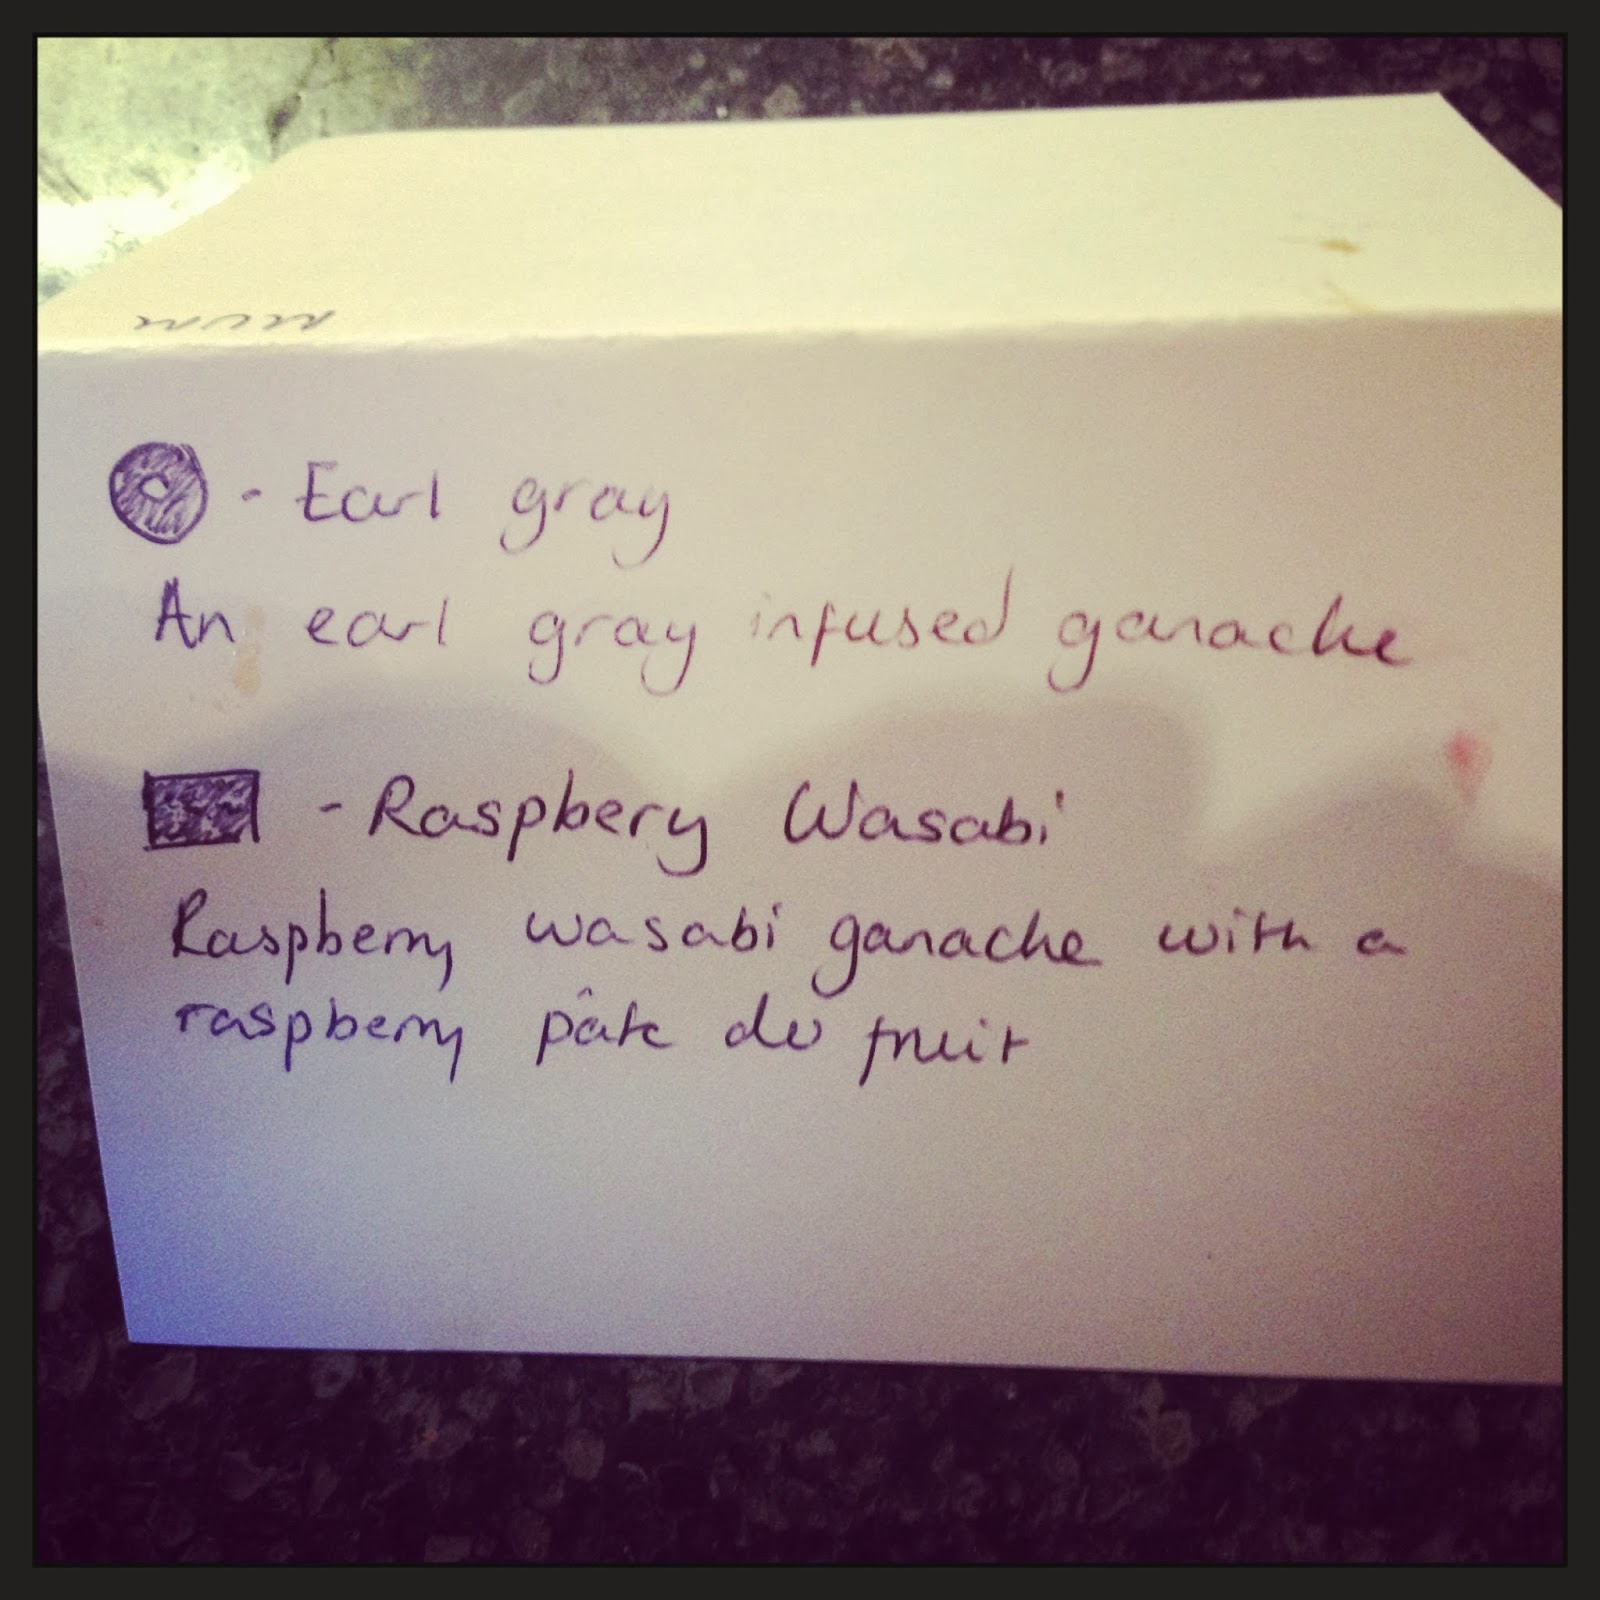 - Earl gray
An earl gray infused ganache
- Raspbery Wasabi
Raspberry wasabi ganache with a
raspberry pâte du fruit